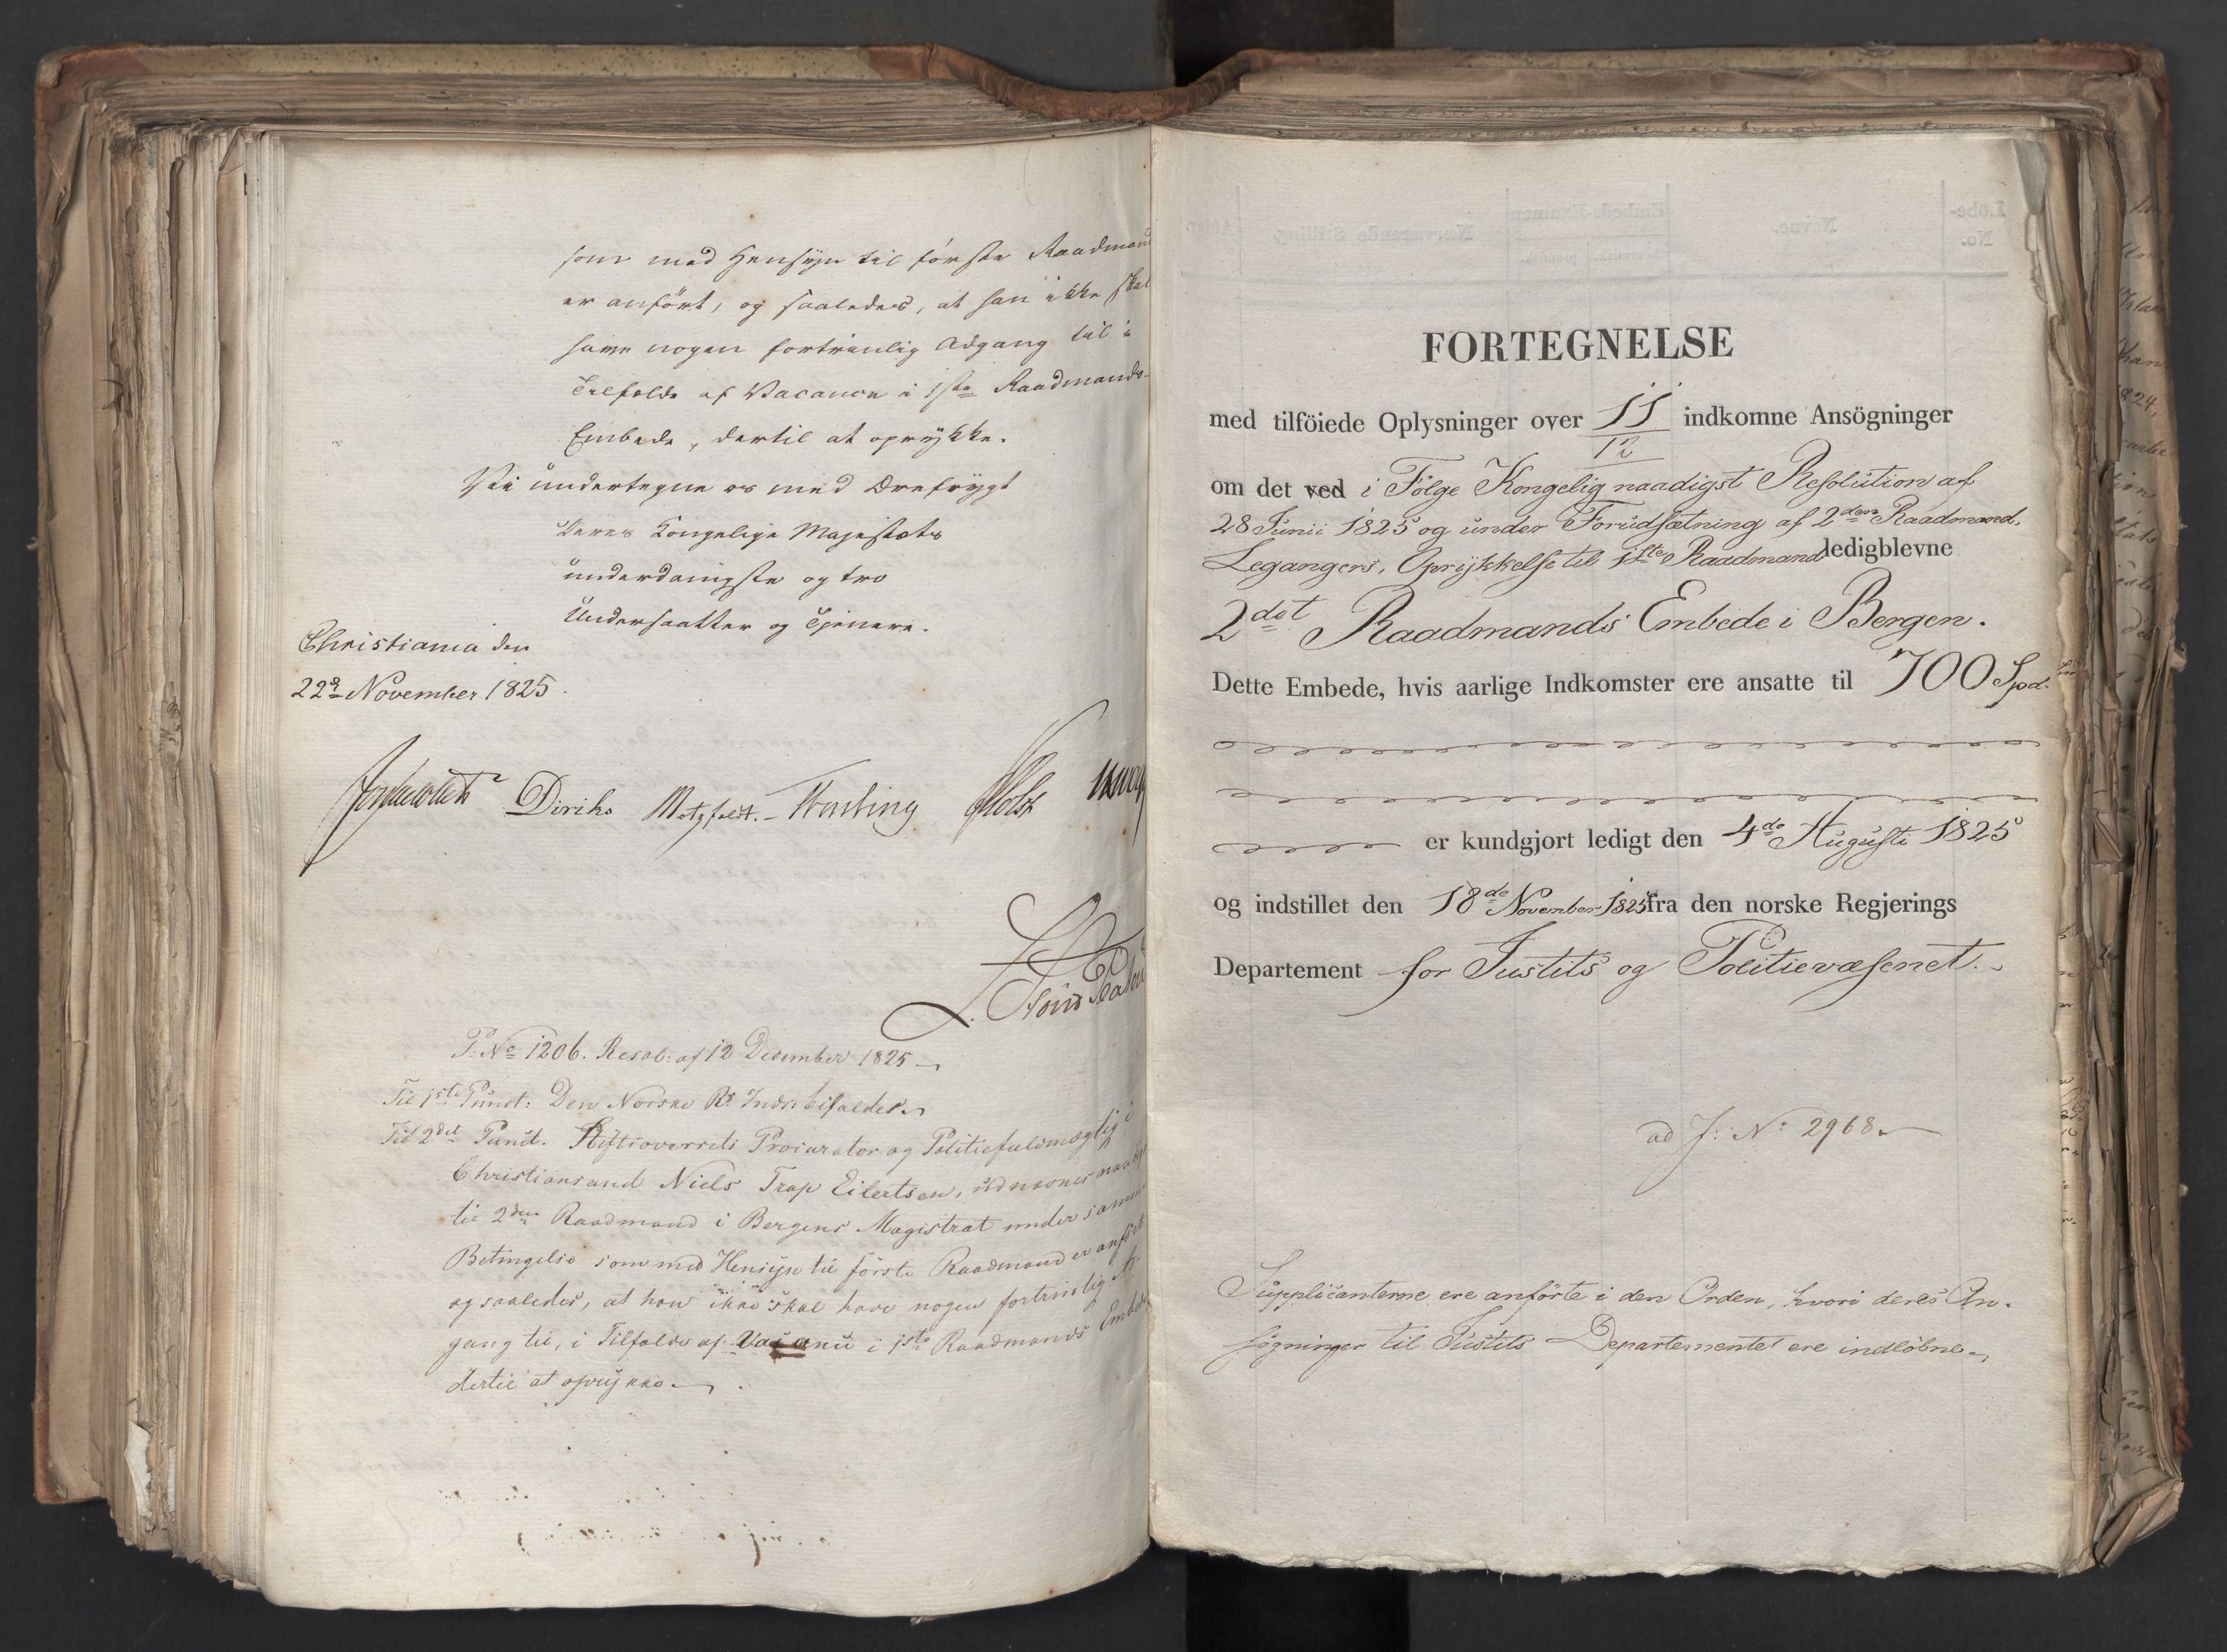 som med Hensyn til første Raadmand
er anført, og saaledes, at han ikke skal
have nogen fortrinlig Adgang til i
Tilfælde af Vacance i 1ste Raadmands-
Embede, dertil at oprykke.
Vi undertegne os med Ærefrygt
Deres Kongelige Majestæts
underdanigste og tro
Undersaatter og Tjenere.
Christiania den
22d November 1825.
Diriks Motzfeldt. Fasting Holst
P: No 1206. Resol: af 12 December 1825
Til 1ste Punct: Den Norske Rs Inds: bifaldes
Til 2det Punct. Stiftsoverrets Procurator og Politiefuldmægtig i
Christiansand Niels Trap Eilertsen, udnævnes naadigst
til 2den Raadmand i Bergens Magistrat under samme
Betingelse som med Hensyn til förste Raadmand er anfört
og saaledes, at han ikke skal have nogen fortrinlig Ad-
gang til, i Tilfælde af Vacance i 1ste Raadmands Embede
dertil at oprykke.
FORTEGNELSE
med tilföiede Oplysninger over 11 indkomne Ansögninger
12
om det ved i Følge Kongelig naadigst Resolution af
28 Junii 1825 og under Forudsætning af 2den Raadmand,
Legangers, Oprykkelse til 1ste Raadmand ledigblevne
2det Raadmands Embede i Bergen.
Dette Embede, hvis aarlige Indkomster ere ansatte til 700 Spd.
er kundgjort ledigt den 4de Augusti 1825
og indstillet den 18de November 1825 fra den norske Regjerings
Departement for Justits og Politievæsenet.
ad J: No 2968
Supplicanterne ere anförte i den Orden, hvori deres An-
søgninger til Justits Departementet ere indløbne